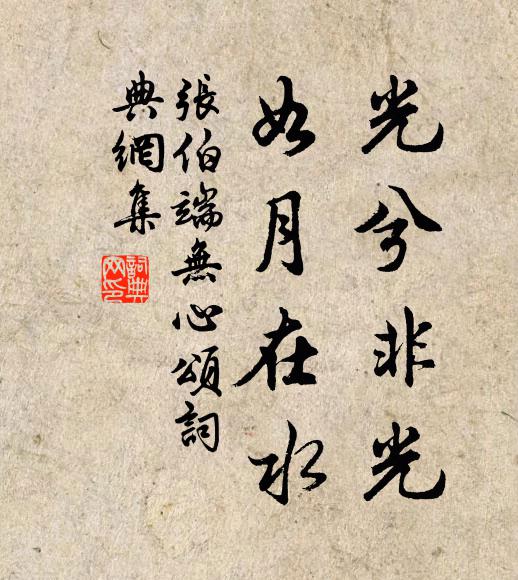 光兮非光
如月在水
張伯端無心頌詞
典網集
詞典網印